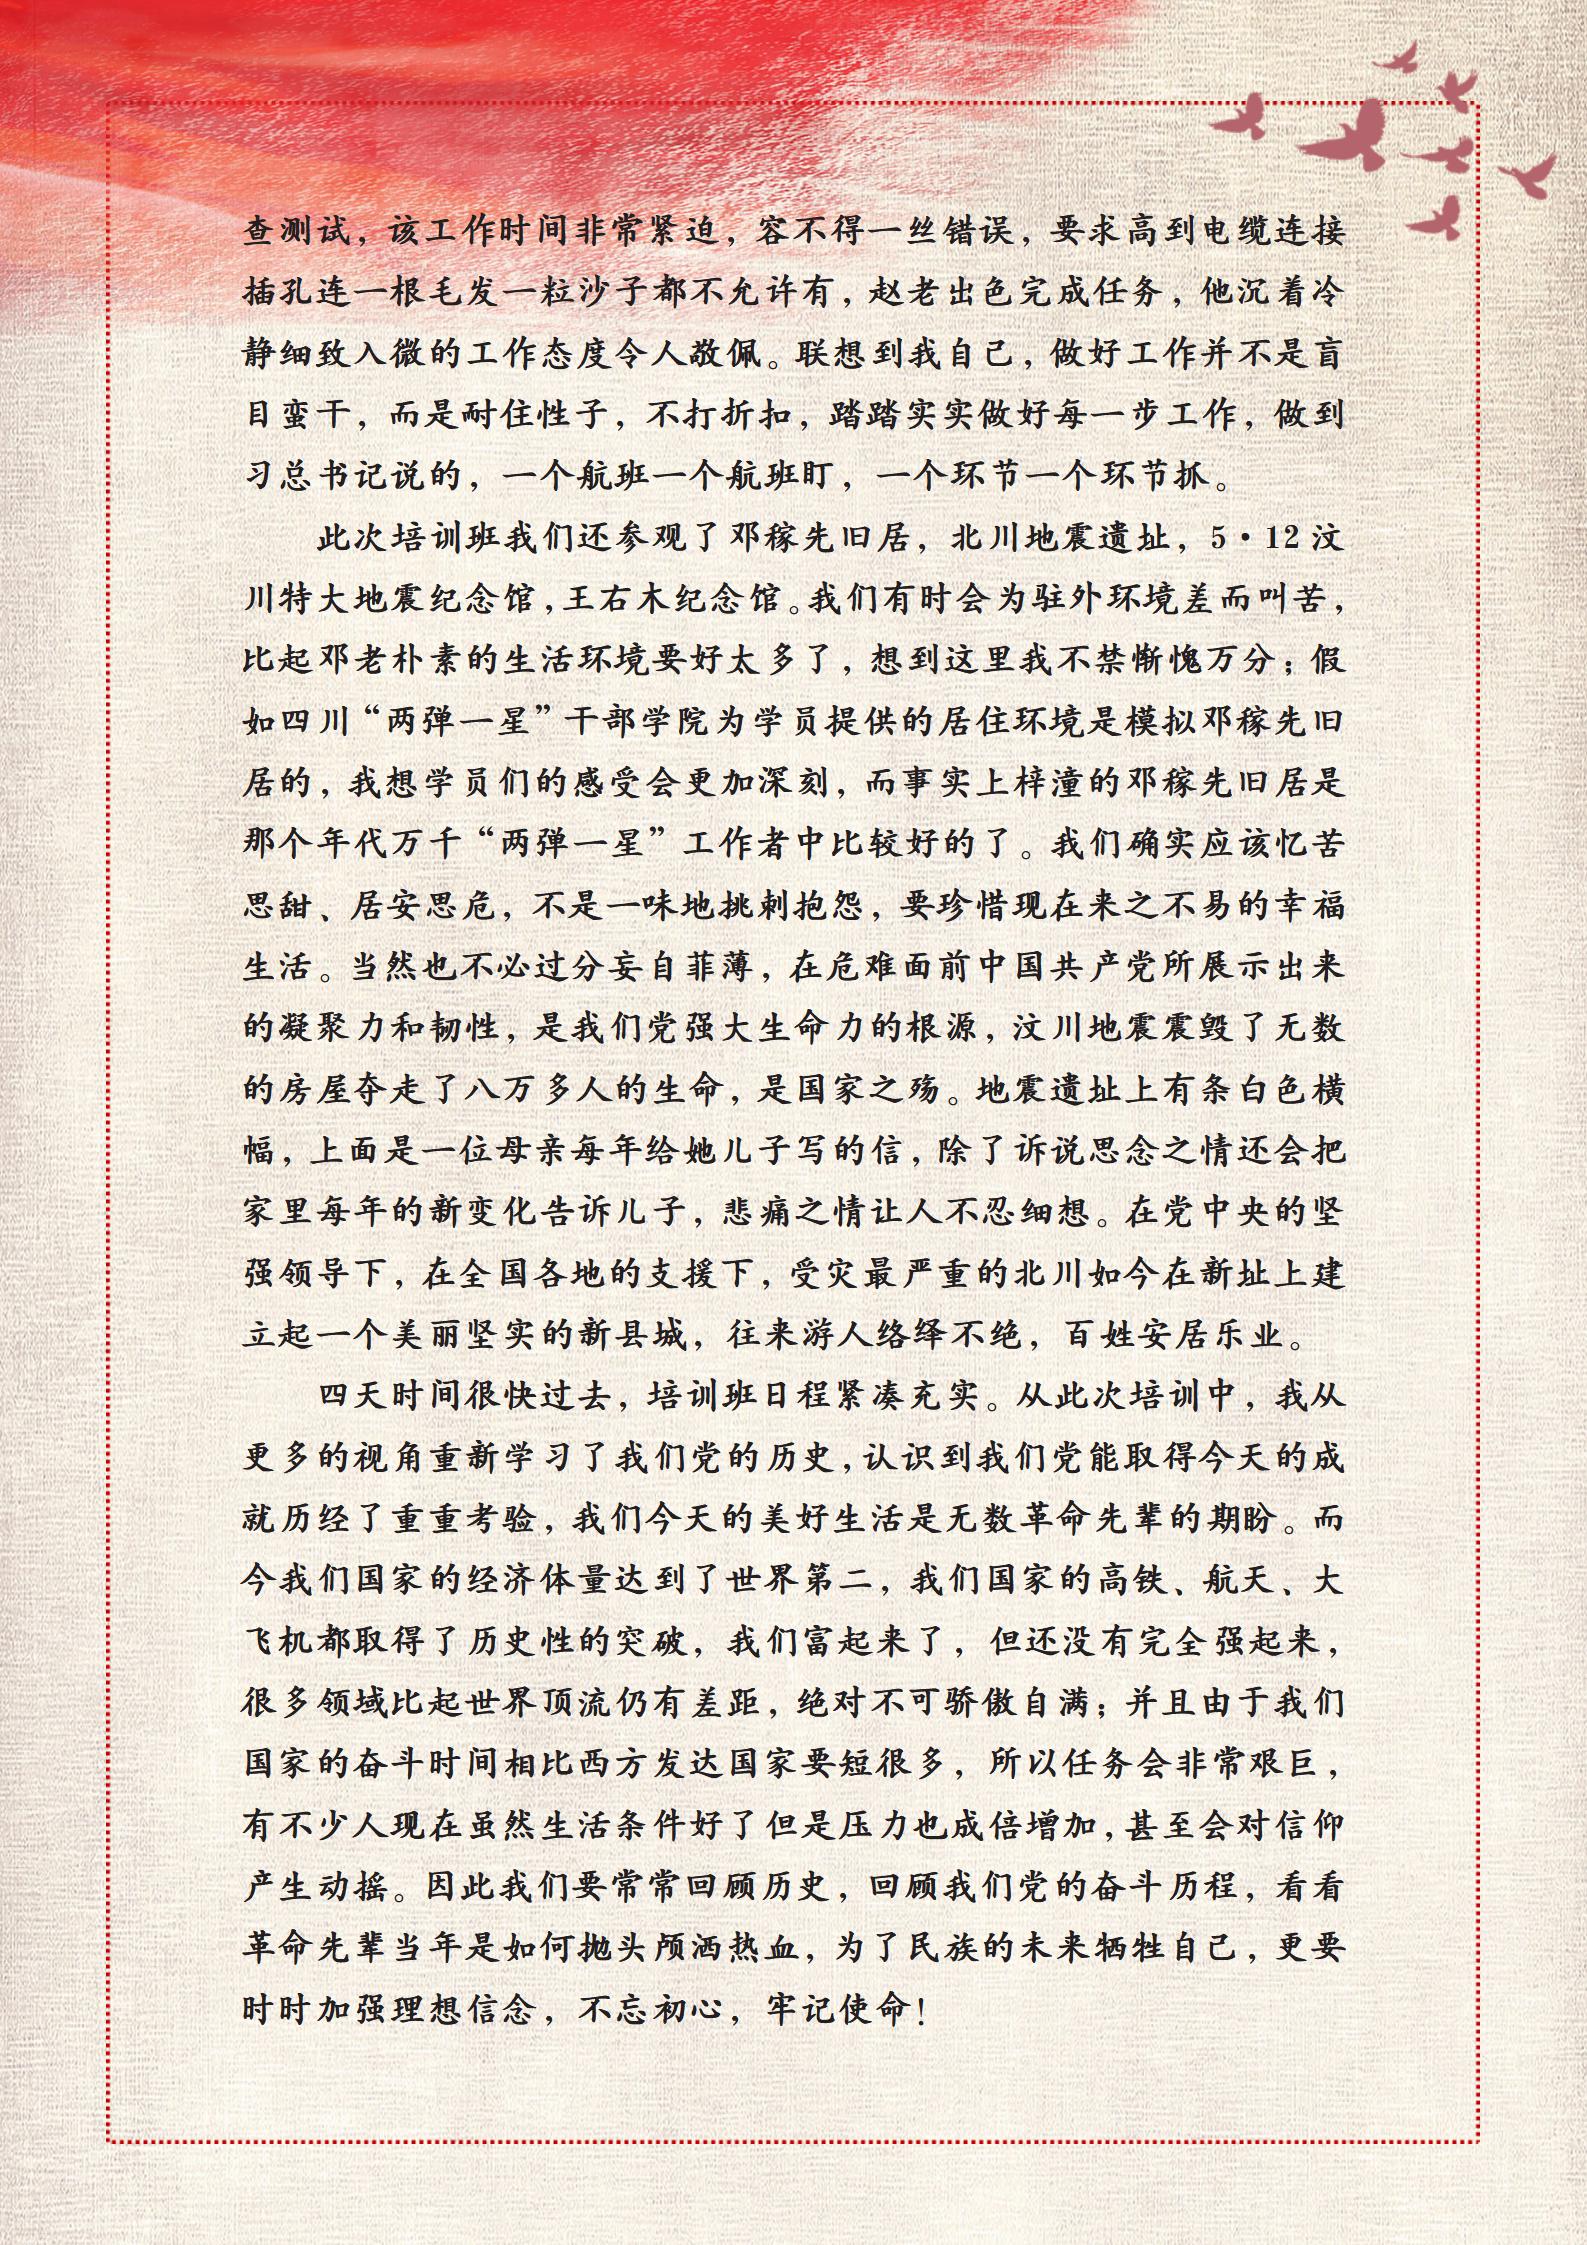 查测试，该工作时间非常紧迫，容不得一丝错误，要求高到电缆连接
插孔连一根毛发一粒沙子都不允许有，赵老出色完成任务，他沉着冷
静细致入微的工作态度令人敬佩。联想到我自己，做好工作并不是盲
目蛮干，而是耐住性子，不打折扣，踏踏实实做好每一步工作，做到
习总书记说的，一个航班一个航班盯，一个环节一个环节抓。
此次培训班我们还参观了邓稼先旧居，北川地震遗址，5·12 汶
川特大地震纪念馆，王右木纪念馆。我们有时会为驻外环境差而叫苦，
比起邓老朴素的生活环境要好太多了，想到这里我不禁惭愧万分；假
如四川“两弹一星”干部学院为学员提供的居住环境是模拟邓稼先旧
居的，我想学员们的感受会更加深刻，而事实上梓潼的邓稼先旧居是
那个年代万千“两弹一星”工作者中比较好的了。我们确实应该忆苦
思甜、居安思危，不是一味地挑刺抱怨，要珍惜现在来之不易的幸福
生活。当然也不必过分妄自菲薄，在危难面前中国共产党所展示出来
的凝聚力和韧性，是我们党强大生命力的根源，汶川地震震毁了无数
的房屋夺走了八万多人的生命，是国家之殇。地震遗址上有条白色横
幅，上面是一位母亲每年给她儿子写的信，除了诉说思念之情还会把
家里每年的新变化告诉儿子，悲痛之情让人不忍细想。在党中央的坚
强领导下，在全国各地的支援下，受灾最严重的北川如今在新址上建
立起一个美丽坚实的新县城，往来游人络绎不绝，百姓安居乐业。
四天时间很快过去，培训班日程紧凑充实。从此次培训中，我从
更多的视角重新学习了我们党的历史，认识到我们党能取得今天的成
就历经了重重考验，我们今天的美好生活是无数革命先辈的期盼。而
今我们国家的经济体量达到了世界第二，我们国家的高铁、航天、大
飞机都取得了历史性的突破，我们富起来了，但还没有完全强起来，
很多领域比起世界顶流仍有差距，绝对不可骄傲自满；并且由于我们
国家的奋斗时间相比西方发达国家要短很多，所以任务会非常艰巨，
有不少人现在虽然生活条件好了但是压力也成倍增加，甚至会对信仰
产生动摇。因此我们要常常回顾历史，回顾我们党的奋斗历程，看看
革命先辈当年是如何抛头颅洒热血，为了民族的未来牺牲自己，更要
时时加强理想信念，不忘初心，牢记使命！